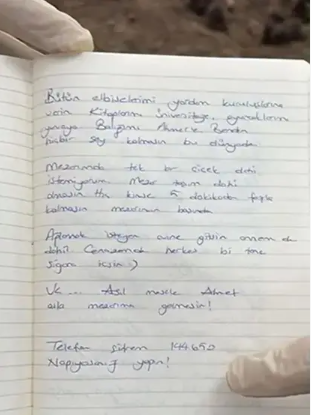 Bütün elbiselerimi yardım kuruluşlarına
verin Kitaplarımı üniversiteye, oyuncaklarım
yuvaya Ahmet'e Benden
hiçbir şey kalmasın bu dünyada
Mezarımda tek bir çiçek dahi
istemiyorum Mezar taşım dahi
olmasın Hiç kimse 5 dakikadan fazla
kalmasın mezarımın başında
Ağlamak isteyen evine gitsin annem de
dahil Cenazemde herkes bi tane
sigara içsin :)
Ve ... Asıl mesele Ahmet
asla mezarıma gelmesin!
Telefon şifrem 144652
yapın!